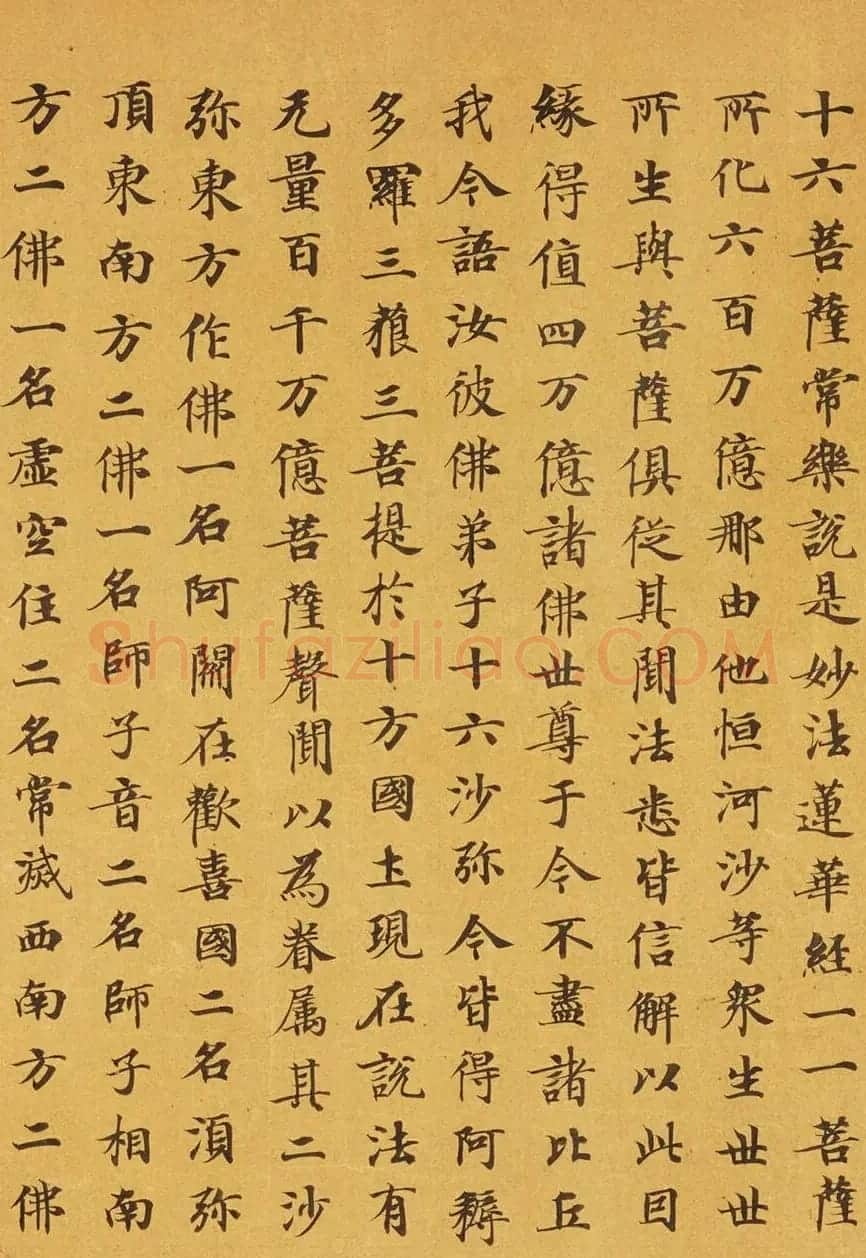 十六菩薩常樂說是妙法蓮華經一一菩薩
所化六百万億那由他恒河沙等衆生世世
所生與菩薩俱從其聞法悉皆信解以此因
緣得值四万億諸佛世尊于今不盡諸比丘
我今語汝彼佛弟子十六沙弥今皆得阿耨
多羅三藐三菩提於十方國土現在說法有
无量百千万億菩薩聲聞以為眷属其二沙
弥東方作佛一名阿閦在歡喜國二名須弥
頂東南方二佛一名師子音二名師子相南
方二佛一名虛空住二名常滅西南方二佛
Shufaziliao.COM